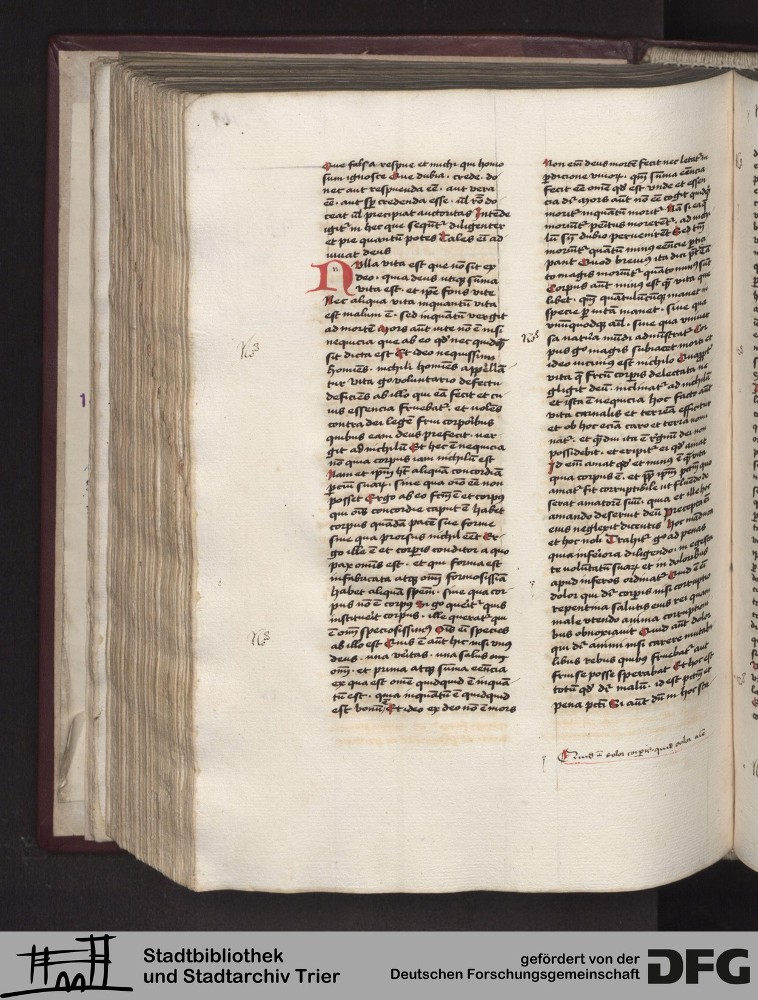 Que falsa respue et michi qui homo
sum ignosce Que dubia . crede . do
nec aut respuenda eē . aut vera
eē . aut sp̄ credenda esse . ul rō do
ceat ul precipiat auctoritas Intēde
igit̄ in hec que seqūt̄ diligenter
et pie quantū potes Tales em̄ ad
iuuat deus
Nulla vita est que nō sit ex
deo . quia deus utiq sūma
vita est . et ipe fons vite
Nec aliqua vita inquantū vita
est malum ē . sed inquātū vergit
ad mortē Mors aūt vite nō ē nisi
nequicia que ab eo qd nec quidq̄
sit dicta est Et ideo nequissimi
homīes . nichili homīes appellā
tur Vita go voluntario defectu
deficiēs ab illo qui eā fecit et cu
ius essencia fruebat̄ . et volēs
contra dei legē frui corporibus
quibus eam deus prefecit . ver
git ad nichilū Et hec ē nequicia
nō quia corpus iam nichilū est
Nam et ipm̄ ht̄ aliquā concordiā
sine qua oīo eē non
posset Ergo ab eo fctm̄ ē et corpus
qui oīs concordie caput ē habet
corpus quādā pacē sue forme
sine qua prorsus nichil eēt Er
go ille ē et corpis conditor a quo
pax omīs est . et qui forma est
infabricata atq oīm formosissiā
habet aliquā spēm . sine qua cor
pus non ē corpus Si go querit̄ quis
instituerit corpus . ille querat̄ qui
ē oīm speciosissimus Oīs ei species
ab illo est Quis ē aūt hic nisi vnus
deus . una veritas . una salus oīm
et prima atq suma eēncia
ex qua est omē quidquid ē inquā
tū est . quia inquātū ē quidquid
est bonū ē Et ideo ex deo nō ē mors
Non em̄ deus mortē fecit nec letat̄ in
perdicione viuor . qm̄ sūma eēncia
fecit eē omē qd est vnde et essen
cia dr̄ Mors aūt nō eē cogit quidq̄
morit̄ inquātū morit̄ Nā si ea q̄
moriūt̄ penitus morerēt̄ . ad nichi
lū sn̄ dubio peruenirēt Sed tm̄
moriūt̄ quātū minus eēncie ptici
pant Quod breuius ita dici pt̄
to magis moriūt̄ quāto minus sūt
Corpus aūt minus est q̄ vita que
libet . qm̄ quātulūcūq manet in
specie p vitā manet . siue qua
vnūquodq aīal . siue qua vniuer
sa natura mūdi administrat̄ Cor
pus go magis subiacet morti et
ideo vicinius est nichilo Quapt̄
vita q̄ fructu corpis delectata ne
gligit deū . inclinat̄ ad nichilū
et ista ē nequicia hoc facto aūt
vita carnalis et terrena efficitur
et ob hoc eciā caro et terra nomi
nat̄ . et qdiu ita ē regnū dei non
possidebit . et eripit̄ ei qd amat
Id em̄ amat qd et minus ē q̄ vita
quia corpus ē . et pp̄ ipm̄ pctm̄ quo
amat̄ fit corruptibile ut fluēdo de
serat amatorē suū . quia et ille hoc
amando deseruit deū Precepta em̄
eius neglexit dicentis hoc manduca
et hoc noli Trahit̄ go ad penas
quia inferiora diligendo . in egesta
te voluptatū suaȝ et in doloribus
apud inferos ordinat̄ Quid ē em̄
dolor qui dr̄ corpis nisi corruptio
repentina salutis eius rei quam
male vtendo anima corruptioni
bus obnoxiauit Quid aūt dolor
qui dr̄ animi nisi carere mutabi
libus rebus quibus fruebat̄ aut
frui se posse sperabat Et hoc est
totū qd dr̄ malū . id est pctm̄ et
pena pcti Si aūt dū in hoc sta
Quis ē dolor corpis . quis dolor aīe
Stadtbibliothek
und Stadtarchiv Trier
gefördert von der
Deutschen Forschungsgemeinschaft
DFG